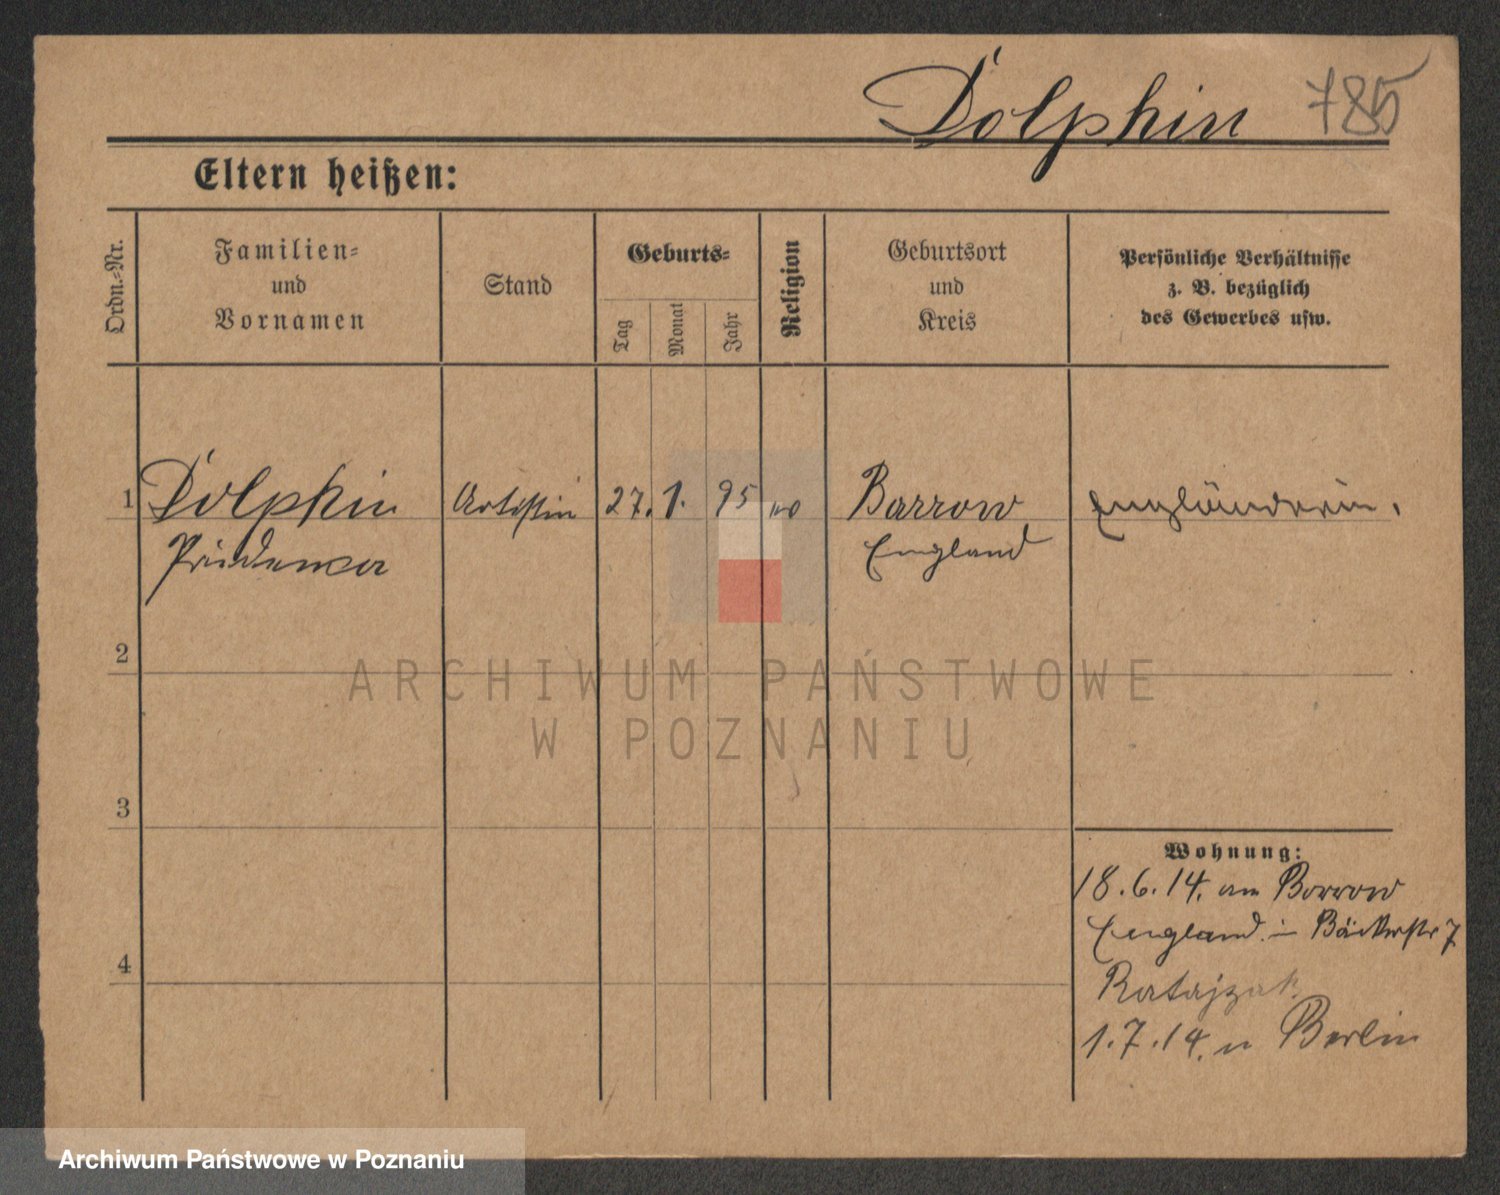 Dolphin 785
Eltern heißen:
Ordn.=Nr.
Familien=
und
Vornamen
Stand
Geburts=
Tag
Monat
Jahr
Religion
Geburtsort
und
Kreis
Persönliche Verhältnisse
z. B. bezüglich
des Gewerbes usw.
1 Dolphin Artistin 27. 1. 95 Barrow Engländerin.
England
2
ARCHIWUM PAŃSTWOWE
W POZNANIU
3
Wohnung:
18.6.14. Barrow
England in Bäckerstr 7
4
Ratajzak
1.7.14. n Berlin
Archiwum Państwowe w Poznaniu